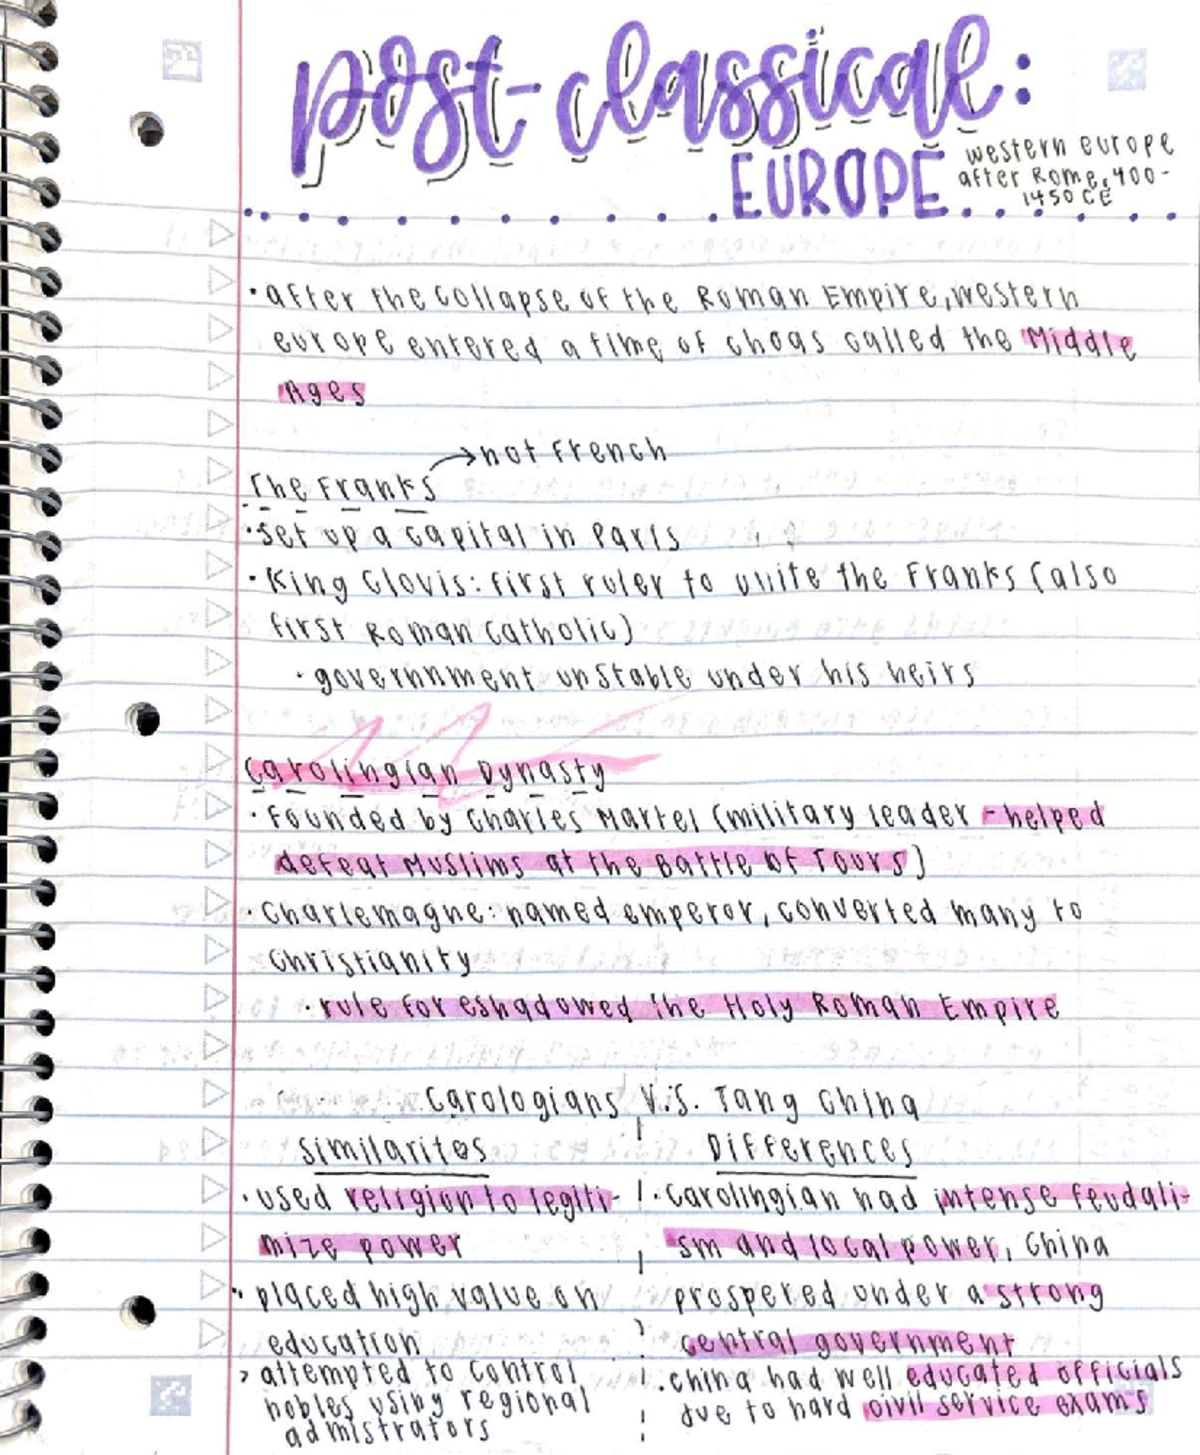 post-classical:
EUROPE
western europe
after Rome, 400-
1450 CE
• after the collapse of the Roman Empire, western
europe entered a time of choas called the Middle
Ages
→ not French
The Franks
• set up a capital in Paris
• King Clovis: first ruler to unite the Franks (also
first Roman Catholic)
• governnment unstable under his heirs
Carolingian Dynasty
• Founded by Charles Martel (military leader - helped
defeat Muslims at the Battle of Tours)
• Charlemagne: named emperor, converted many to
Christianity
• rule foreshadowed the Holy Roman Empire
Carologians V.S. Tang China
similarites
• used religion to legiti-
mize power
• placed high value on
education
> attempted to control
nobles using regional
admistrators
Differences
• Carolingian had intense feudali-
sm and local power, China
prospered under a strong
central government
• china had well educated officials
due to hard civil service exams